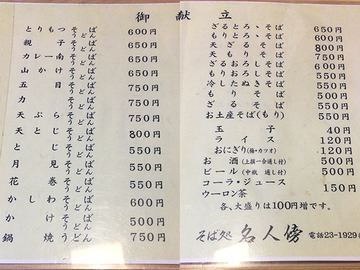 御献立
とりもつ そば うどん 600円
親子 そば うどん
カレー南 そば うどん 650円
山かけ そば うどん
五目 そば うどん 750円
力 そば うどん
天ぷら そば うどん 750円
天とじ そば うどん 800円
とじ そば うどん 550円
月見 そば うどん 550円
花巻 そば うどん 550円
かしわ そば うどん
かけ そば うどん 500円
鍋焼うどん 750円
ざるとろろそば 650円
もりとろろそば 600円
天ざるそば 800円
天もりそば 750円
ざるおろしそば
もりおろしそば
冷したぬきそば 550円
もりそば 500円
ざるそば 550円
お土産そば(もり) 550円
玉子 40円
ライス 120円
おにぎり(梅・カツオ) 120円
お酒(上撰一合通し付)
ビール(中瓶 通し付) 550円
コーラ・ジュース
ウーロン茶 150円
各、大盛りは100円増です。
そば処 名人傍 電話23-1929